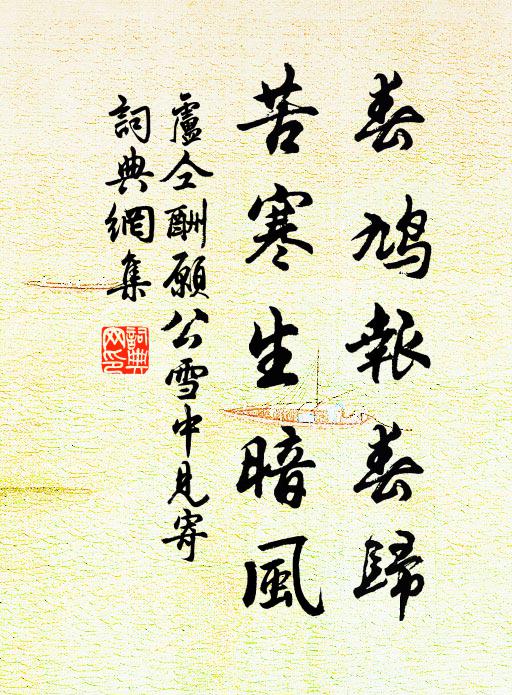 春鳩報春歸
苦寒生暗風
盧仝酬願公雪中見寄
詞典網集
詞典
网印